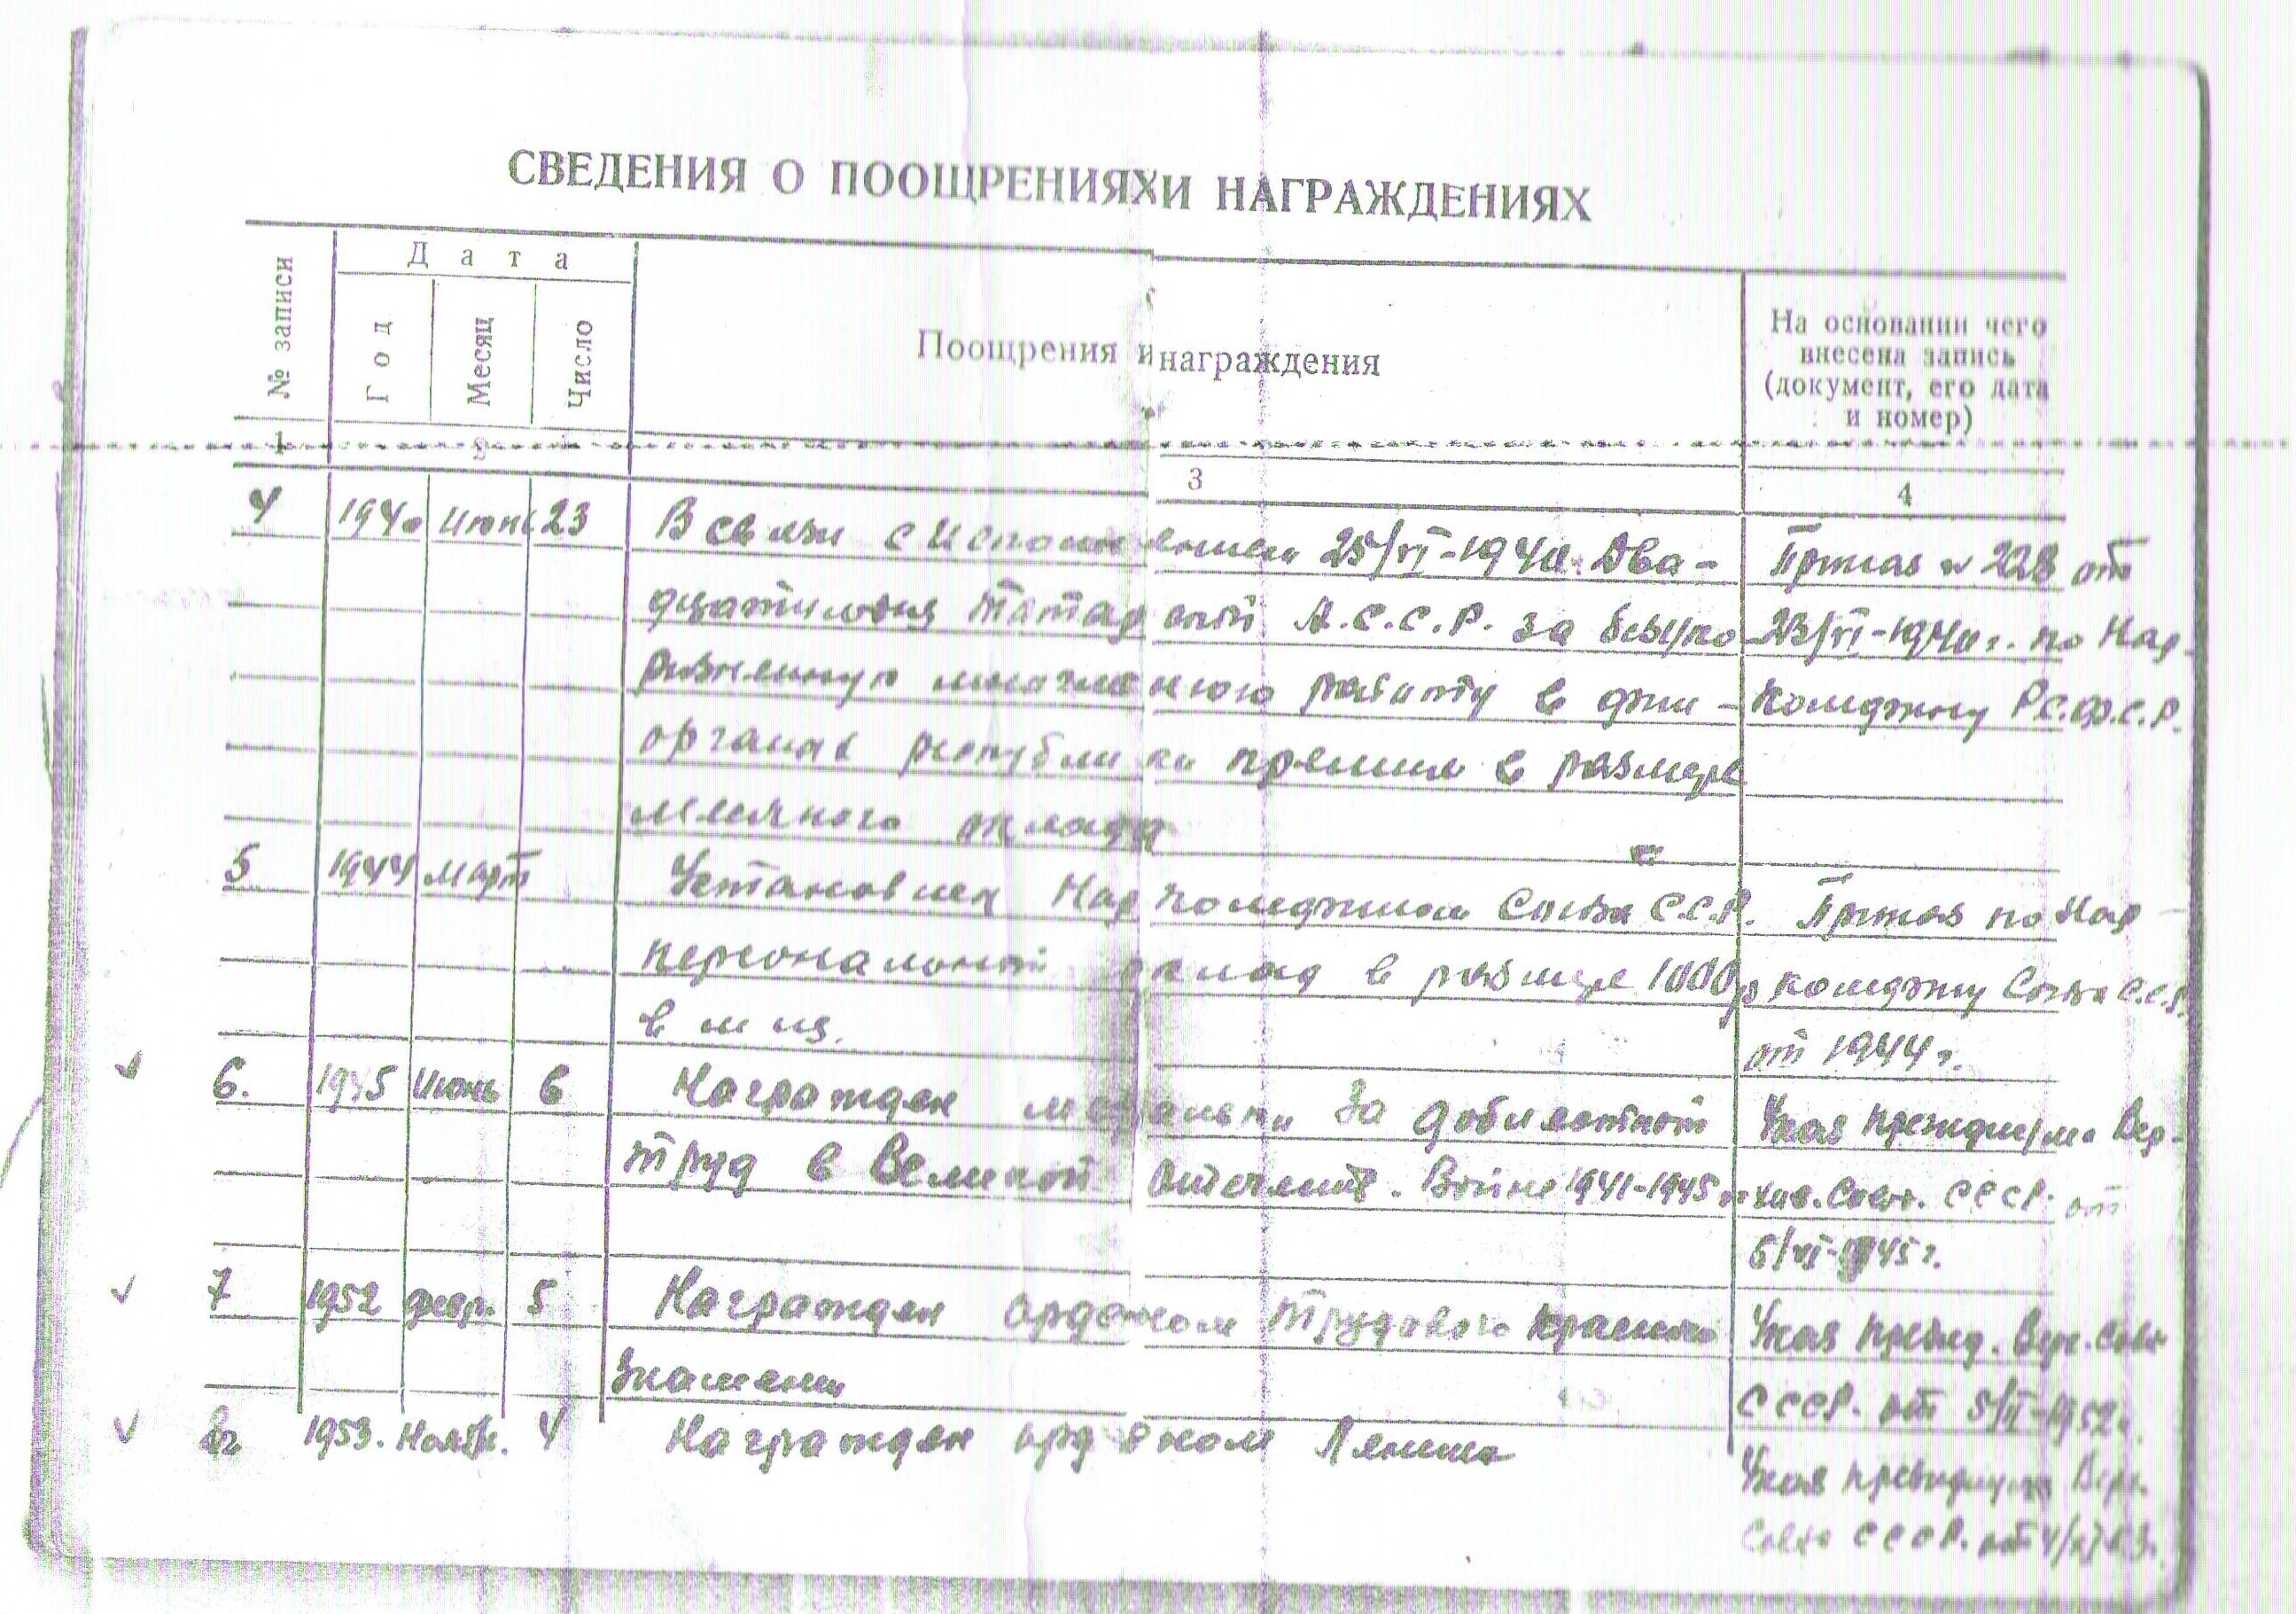 СВЕДЕНИЯ О ПООЩРЕНИЯХ И НАГРАЖДЕНИЯХ
№ записи
Дата
Год
Месяц
Число
Поощрения и награждения
На основании чего
внесена запись
(документ, его дата
и номер)
1 2 3 4
4 1940 Июнь 23 В связи с Исполнением 25/VI-1940. Два- Приказ № 228 от
дцатилетия Татарской А.С.С.Р. за безуко- 23/VI-1940 г. по Нар-
ризненную многолетнюю работу в фин- комфину Р.С.Ф.С.Р.
органах республики премия в размере
месячного оклада
5 1944 Март Установлен Наркомфином Союза С.С.Р. Приказ по Нар-
персональный оклад в размере 1000 р комфину Союза С.С.Р.
в м-ц. от 1944 г.
6. 1945 Июнь 6 Награжден медалью За доблестный Указ президиума Вер-
труд в Великой Отечеств. Войне 1941-1945 гг хов. Совет. СССР. от
6/VI-1945 г.
7 1952 февр. 5 Награжден орденом Трудового Красного Указ през. Верх. Сов.
Знамени СССР. от 5/II-1952 г.
8. 1953. Ноябр. 4 Награжден орденом Ленина
Указ президиума Верх.
Совета СССР. от 4/XI-53.